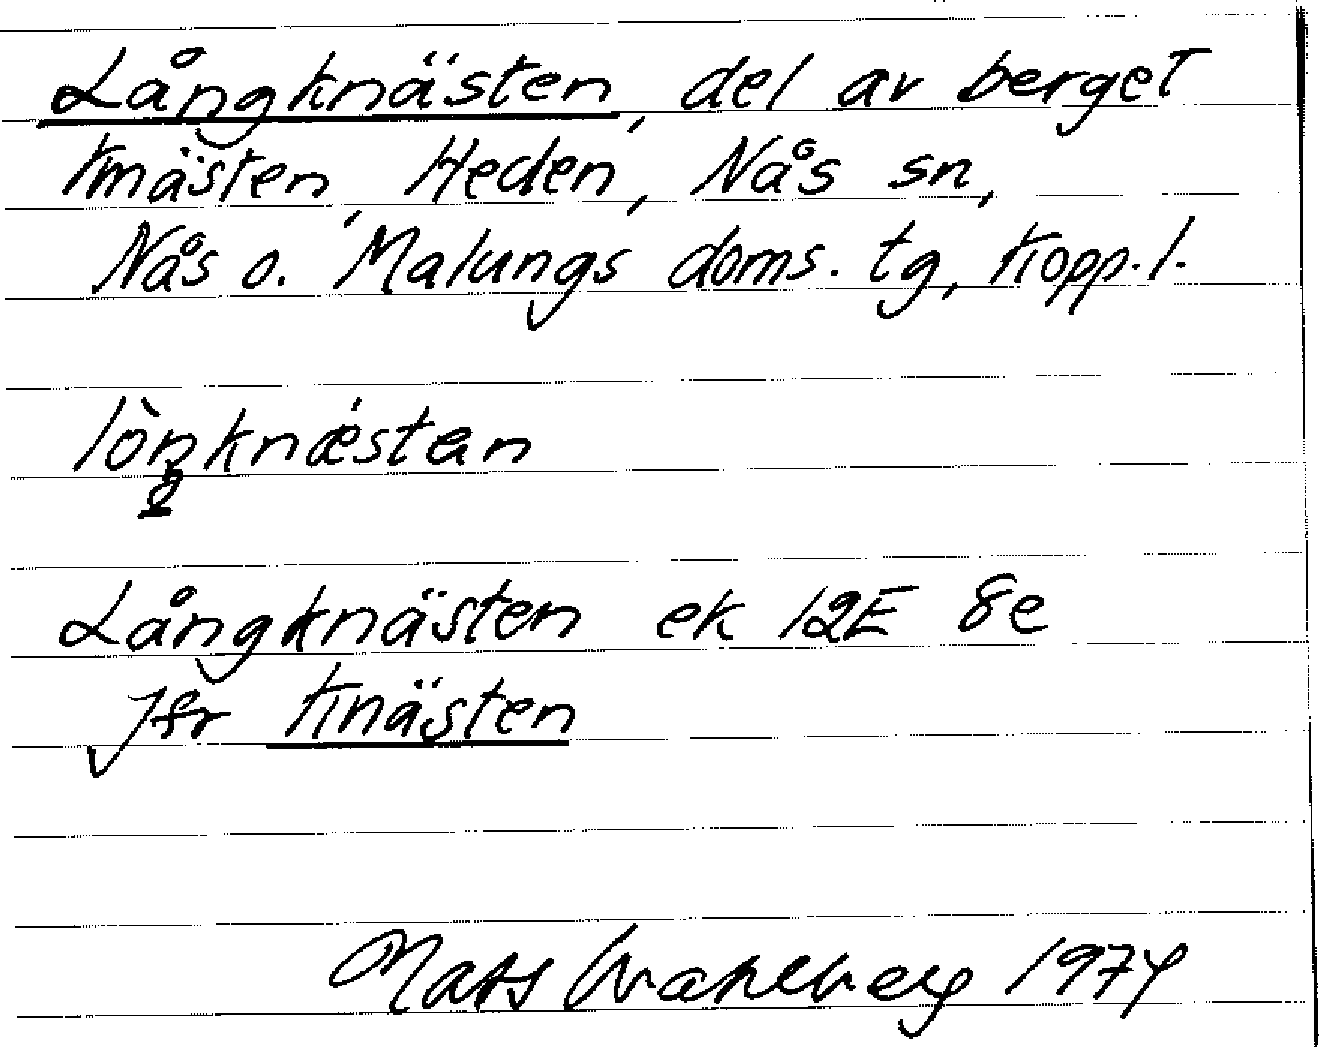 Långknästen, del av berget
Knästen, Heden, Nås sn,
Nås o. Malungs doms. tg, Kopp. l.
lòŋknǽstan
Långknästen ek 12E 8e
Jfr Knästen
Mats Wahlberg 1974